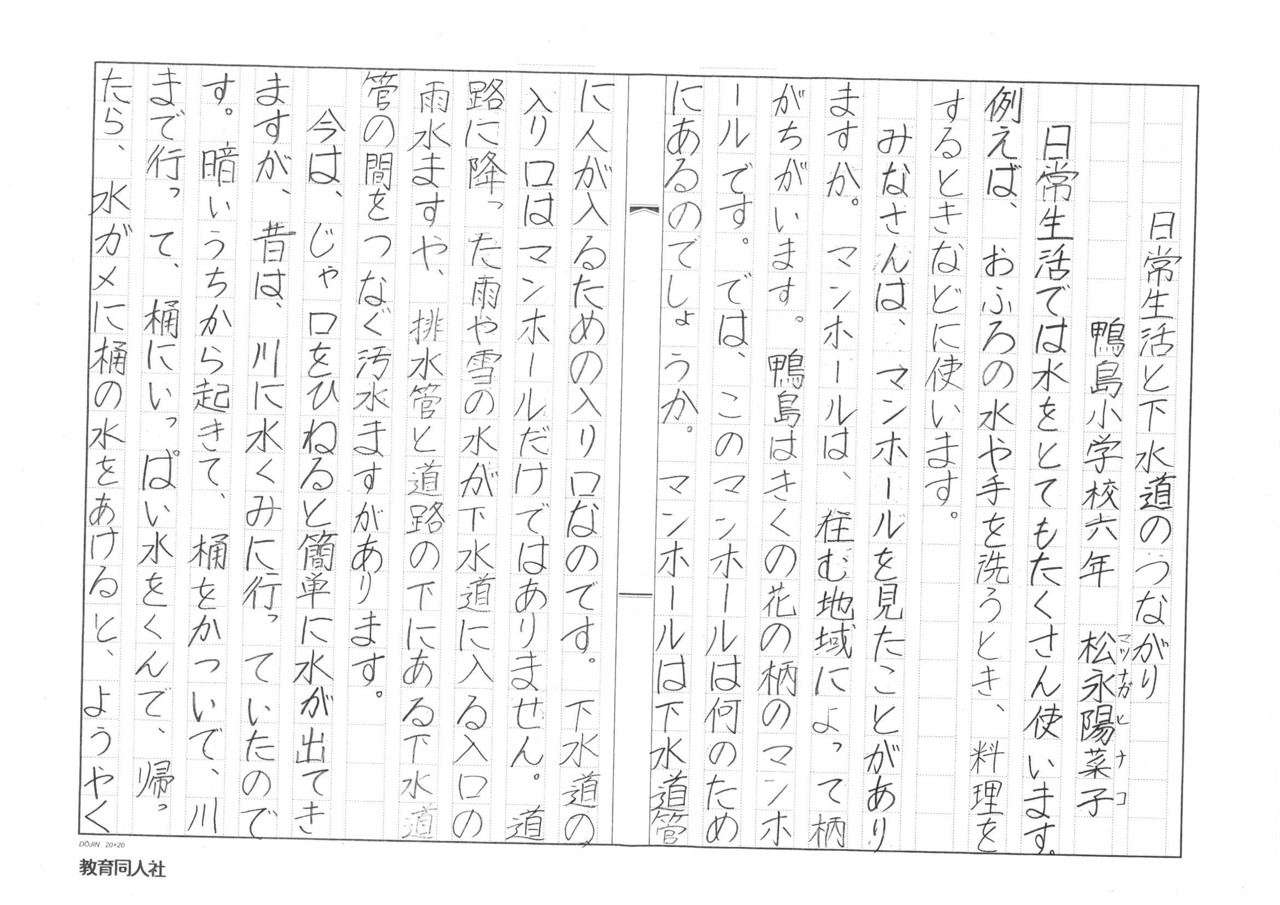 日常生活と下水道のつながり
鴨島小学校六年 松永陽菜子
マツナガヒナコ
日常生活では水をとてもたくさん使います。
例えば、おふろの水や手を洗うとき、料理を
するときなどに使います。
みなさんは、マンホールを見たことがあり
ますか。マンホールは、住む地域によって柄
がちがいます。鴨島はきくの花の柄のマンホ
ールです。では、このマンホールは何のため
にあるのでしょうか。マンホールは下水道管
に人が入るための入り口なのです。下水道の
入り口はマンホールだけではありません。道
路に降った雨や雪の水が下水道に入る入口の
雨水ますや、排水管と道路の下にある下水道
管の間をつなぐ汚水ますがあります。
今は、じゃ口をひねると簡単に水が出てき
ますが、昔は、川に水くみに行っていたので
す。暗いうちから起きて、桶をかついで、川
まで行って、桶にいっぱい水をくんで、帰っ
たら、水ガメに桶の水をあけると、ようやく
DŌJIN 20×20
教育同人社